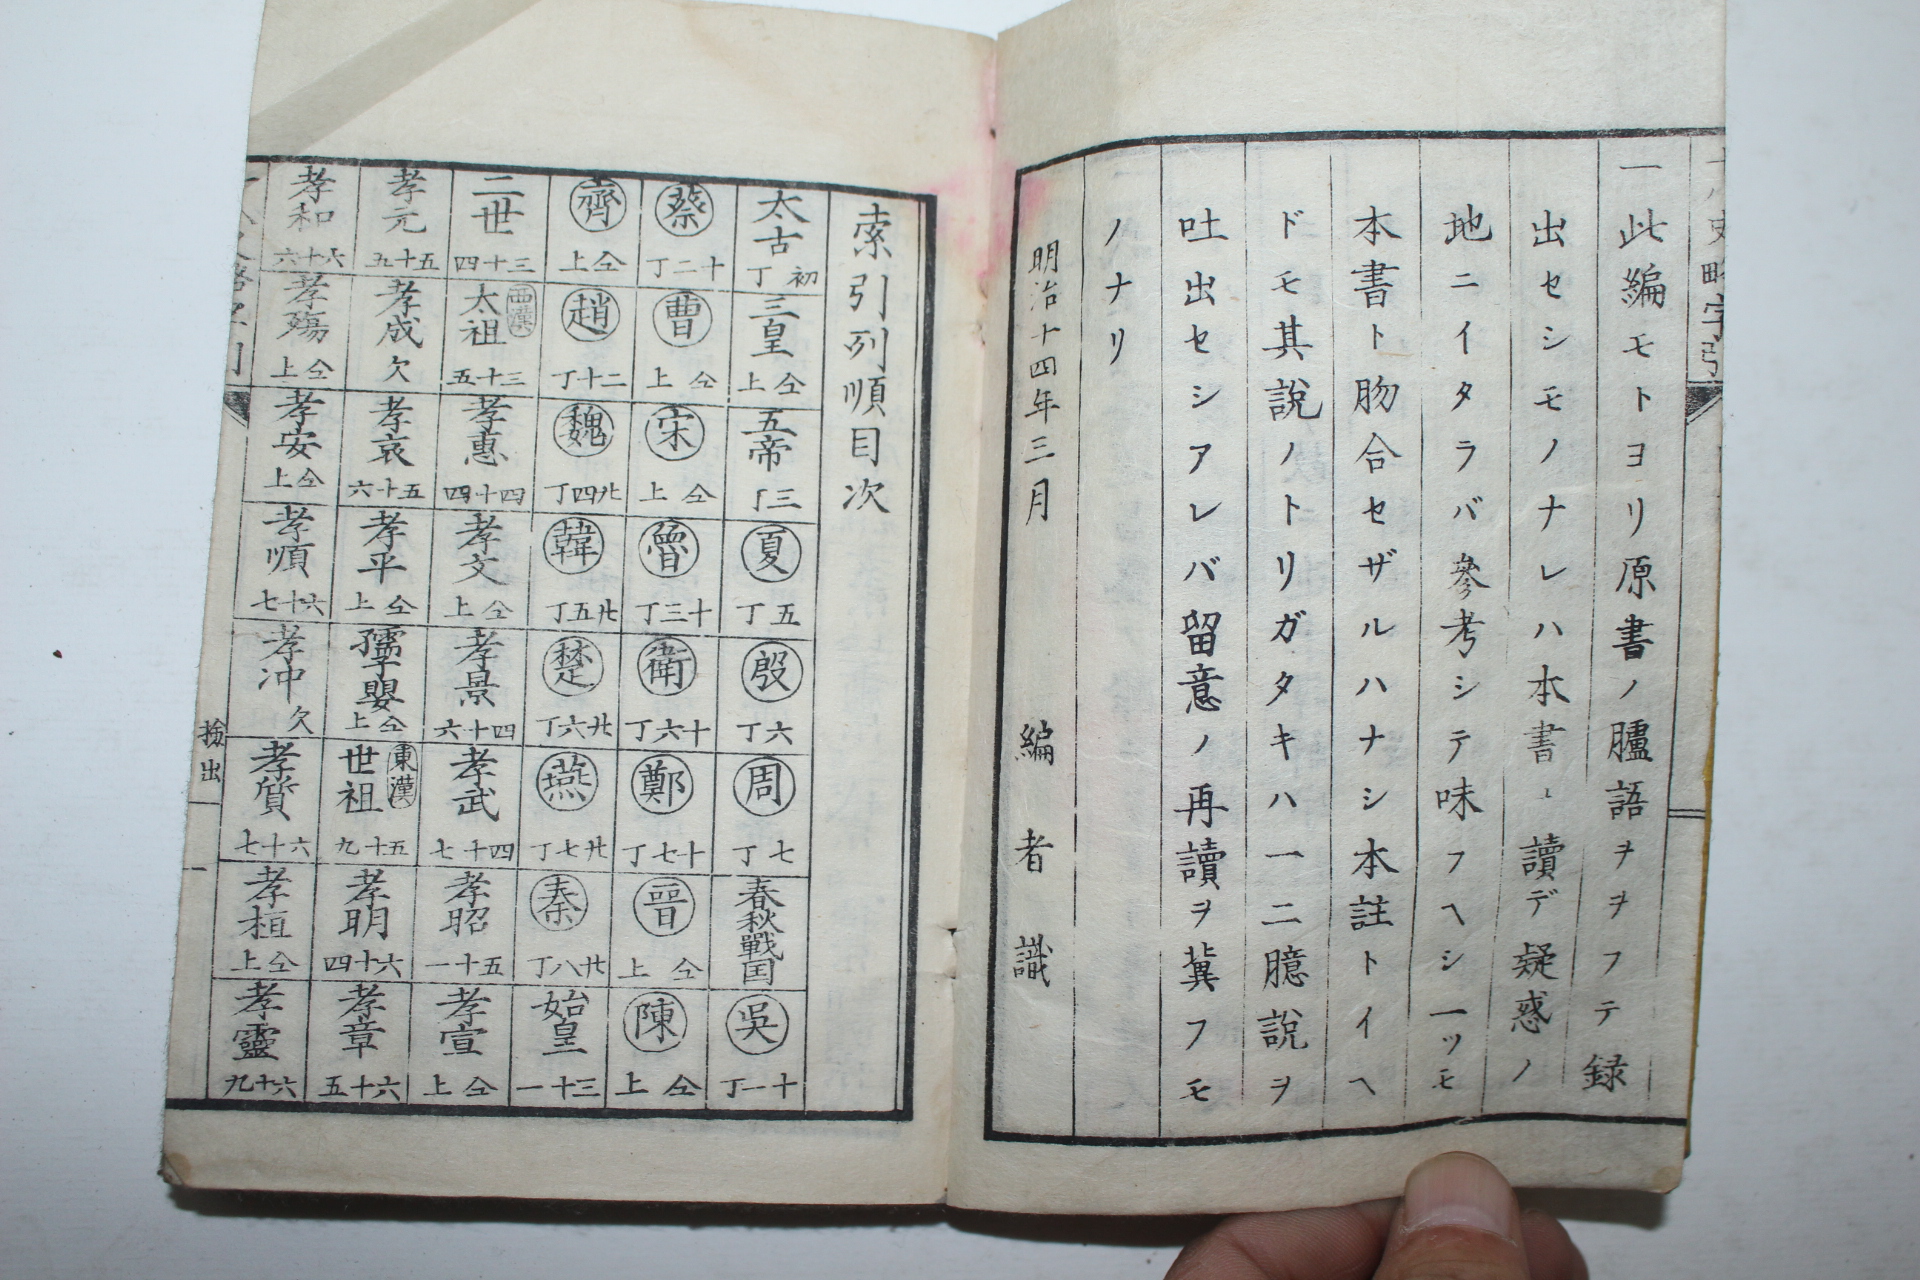 史略字引
一此編モトヨリ原書ノ臚語ヲヲフテ録
出セシモノナレハ本書ヲ讀デ疑惑ノ
地ニイタラバ參考シテ味フヘシ一ツモ
本書ト脗合セザルハナシ本註トイヘ
ドモ其說ノトリガタキハ一二臆說ヲ
吐出セシアレバ留意ノ再讀ヲ冀フモ
ノナリ
明治十四年三月 編者識
索引列順目次
太古 初丁 三皇 仝上 五帝 三丁 夏 五丁 殷 六丁 周 七丁 春秋戰国 吳 十一丁
蔡 十二丁 曹 仝上 宋 仝上 魯 十三丁 衛 十六丁 鄭 十七丁 晉 仝上 陳 仝上
齊 仝上 趙 二十丁 魏 廿四丁 韓 廿五丁 楚 廿六丁 燕 廿七丁 秦 廿八丁 始皇 三十一
二世 三十四 西漢 太祖 三十五 孝惠 四十四 孝文 仝上 孝景 四十六 孝武 四十七 孝昭 五十一 孝宣 仝上
孝元 五十五 孝成 欠 孝哀 五十六 孝平 仝上 孺子嬰 仝上 東漢 世祖 五十九 孝明 六十四 孝章 六十五
孝和 六十六 孝殤 仝上 孝安 仝上 孝順 六十七 孝冲 欠 孝質 六十七 孝桓 仝上 孝靈 六十九
撿出 一